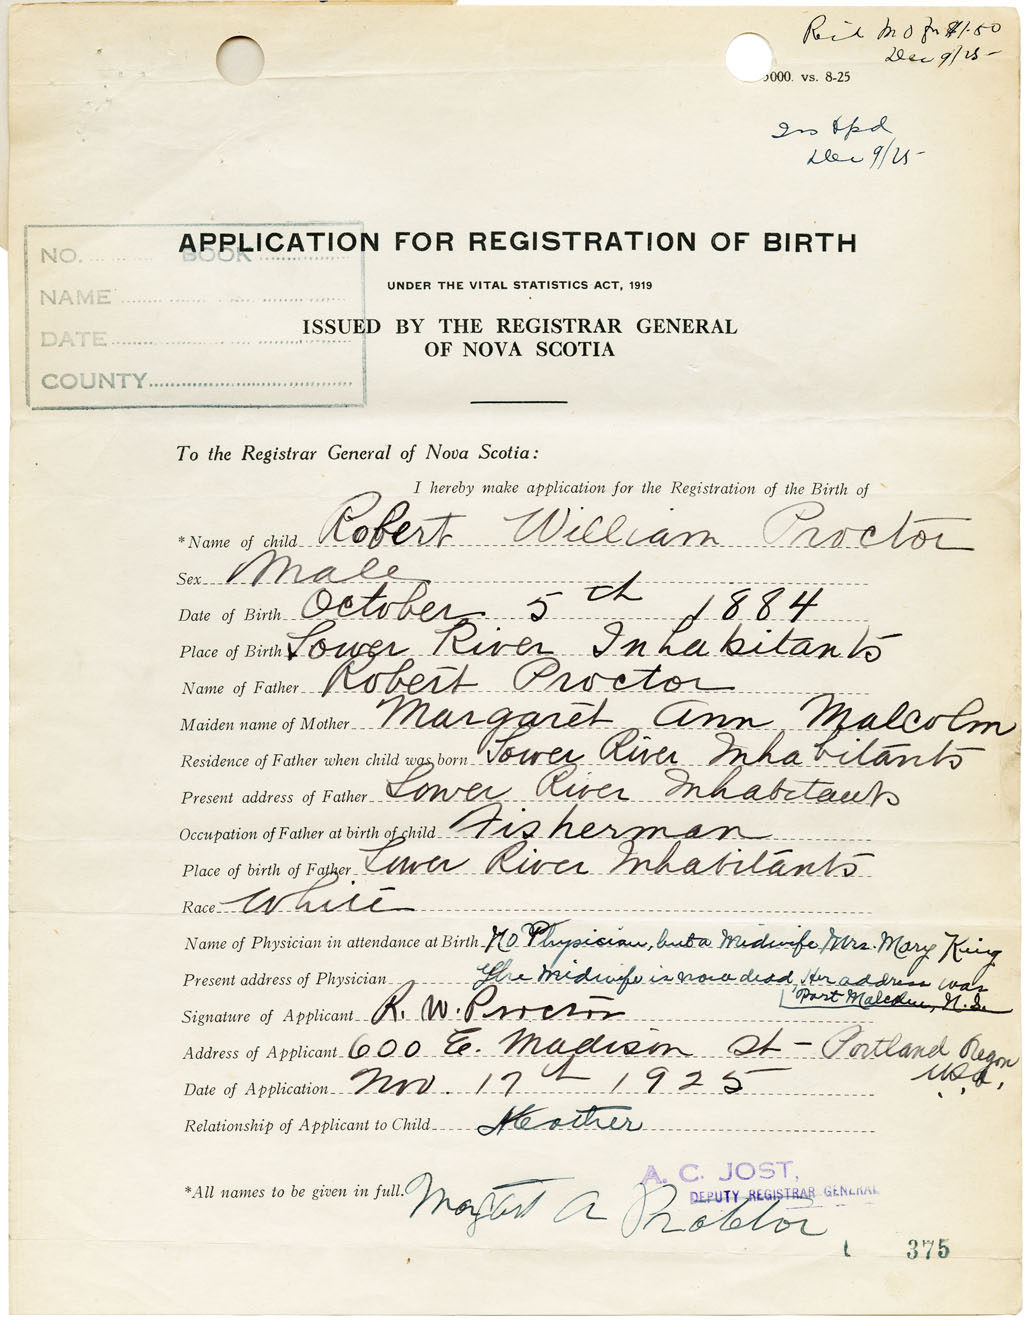 Rec'd M O for $1.50
Dec 9/25
5000. vs. 8-25
Dec 9/25
APPLICATION FOR REGISTRATION OF BIRTH
UNDER THE VITAL STATISTICS ACT, 1919
ISSUED BY THE REGISTRAR GENERAL
OF NOVA SCOTIA
NO. BOOK
NAME
DATE
COUNTY
To the Registrar General of Nova Scotia:
I hereby make application for the Registration of the Birth of
*Name of child Robert William Proctor
Sex Male
Date of Birth October 5th 1884
Place of Birth Lower River Inhabitants
Name of Father Robert Proctor
Maiden name of Mother Margaret Ann Malcolm
Residence of Father when child was born Lower River Inhabitants
Present address of Father Lower River Inhabitants
Occupation of Father at birth of child Fisherman
Place of birth of Father Lower River Inhabitants
Race White
Name of Physician in attendance at Birth No Physician, but a Midwife Mrs. Mary King
Present address of Physician The Midwife is now dead, Her address was
Port Malcolm, N.S.
Signature of Applicant R. W. Proctor
Address of Applicant 600 E. Madison St - Portland Regon
U.S.A.
Date of Application Nov. 17th 1925
Relationship of Applicant to Child Mother
A. C. JOST,
DEPUTY REGISTRAR GENERAL
*All names to be given in full. Margret A Proctor
375